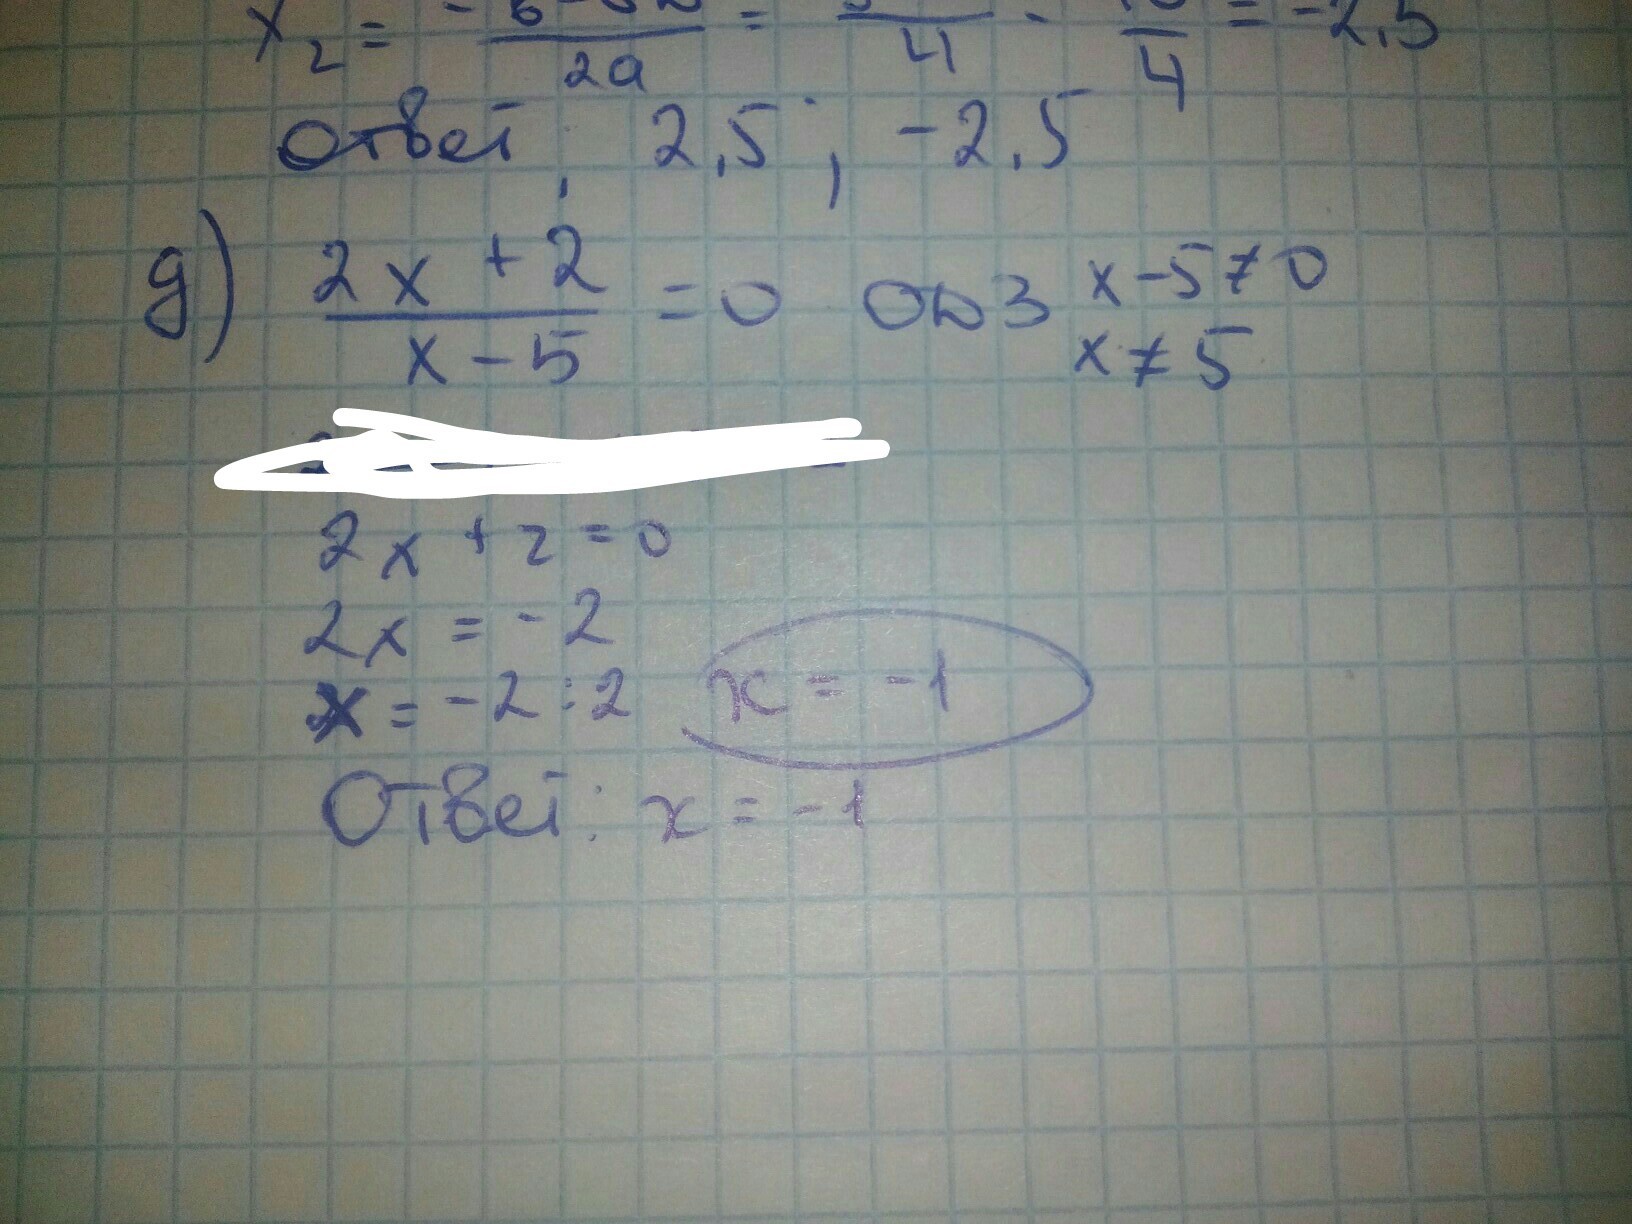 x₂ = = = -2,5
2a 4 4
Ответ: 2,5; -2,5
g) 2x + 2 = 0 ОДЗ x-5≠0
x-5 x≠5
2x + 2 = 0
2x = -2
x = -2:2 x = -1
Ответ: x = -1